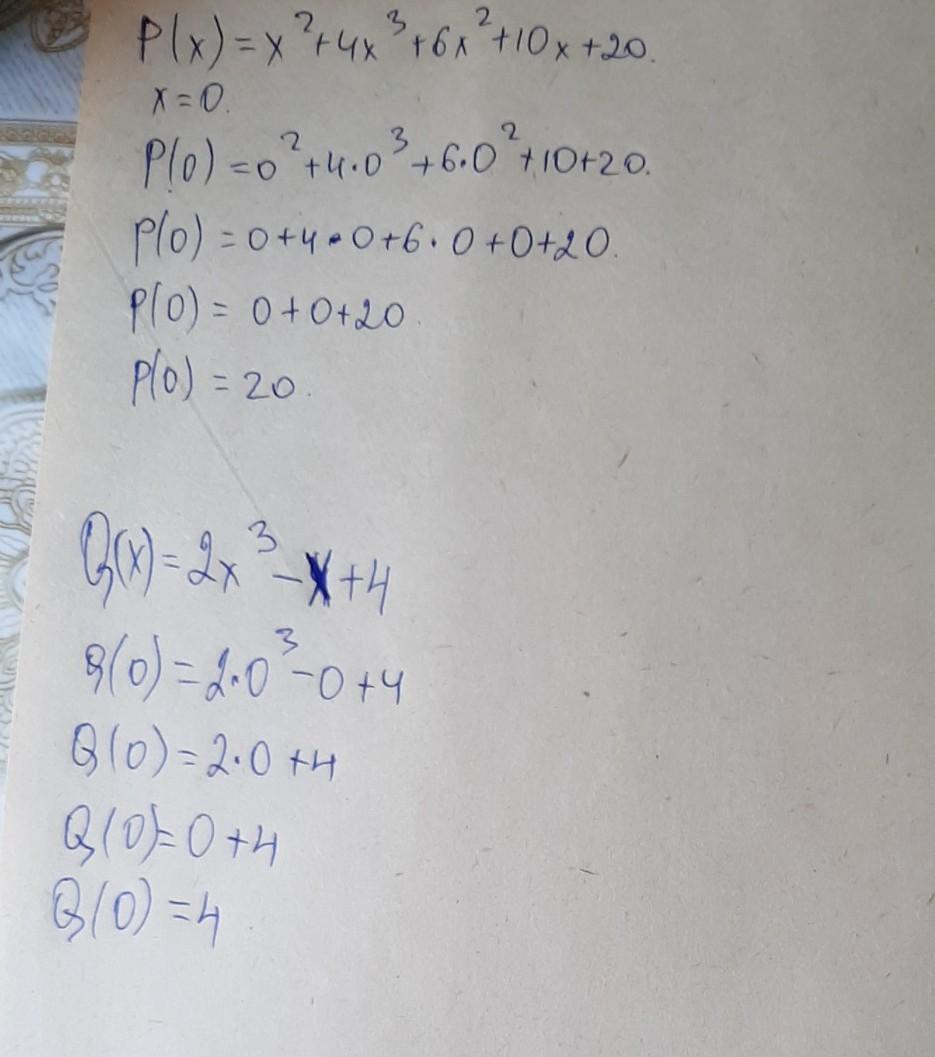 P(x)=x²+4x³+6x²+10x+20.
x=0.
P(0)=0²+4·0³+6·0²+10+20.
P(0)=0+4·0+6·0+0+20.
P(0)=0+0+20.
P(0)=20.
Q(x)=2x³-x+4
Q(0)=2·0³-0+4
Q(0)=2·0+4
Q(0)=0+4
Q(0)=4